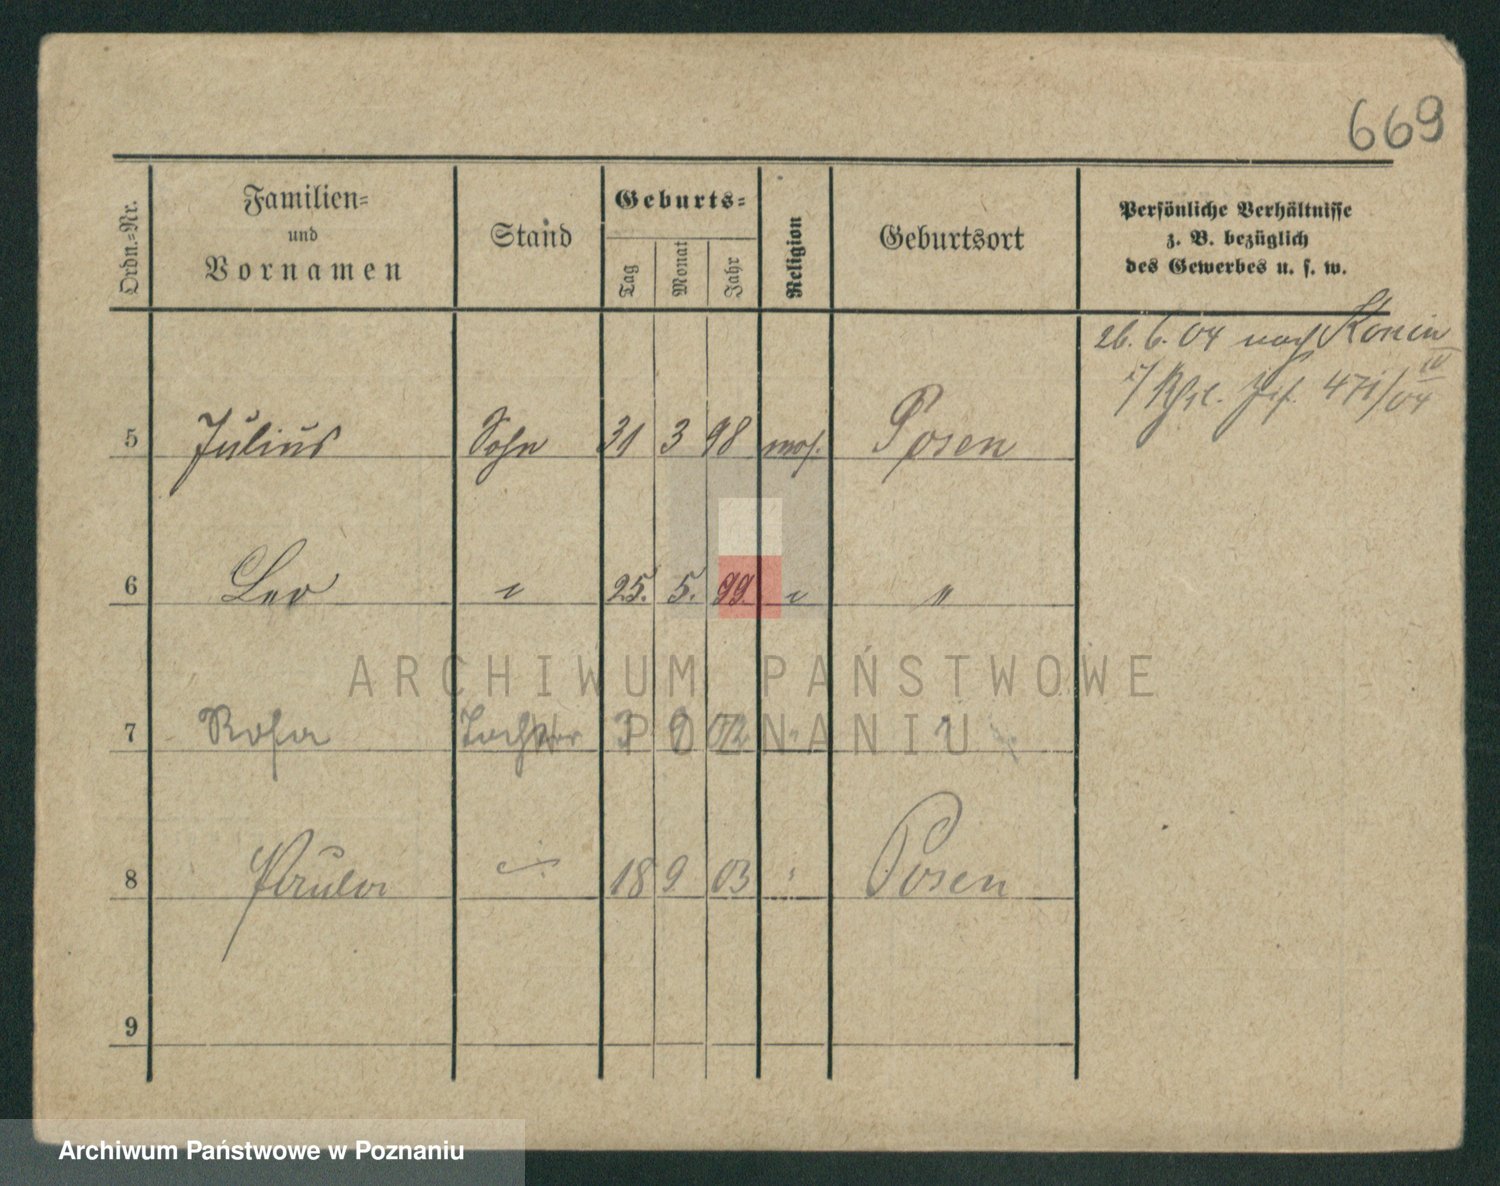 669
Ordn.-Nr.
Familien-
und
Vornamen
Stand
Geburts-
Tag
Monat
Jahr
Religion
Geburtsort
Persönliche Verhältnisse
z. B. bezüglich
des Gewerbes u. s. w.
26. 6. 04 nach Konin
471/04
IV
5 Julius Sohn 31 3 98 mos. Posen
6 Leo " 25. 5. 99. " "
ARCHIWUM PAŃSTWOWE
W POZNANIU
7 Rosa Tochter 3 9 02 " "
8 Paula " 18 9 03 " Posen
9
Archiwum Państwowe w Poznaniu